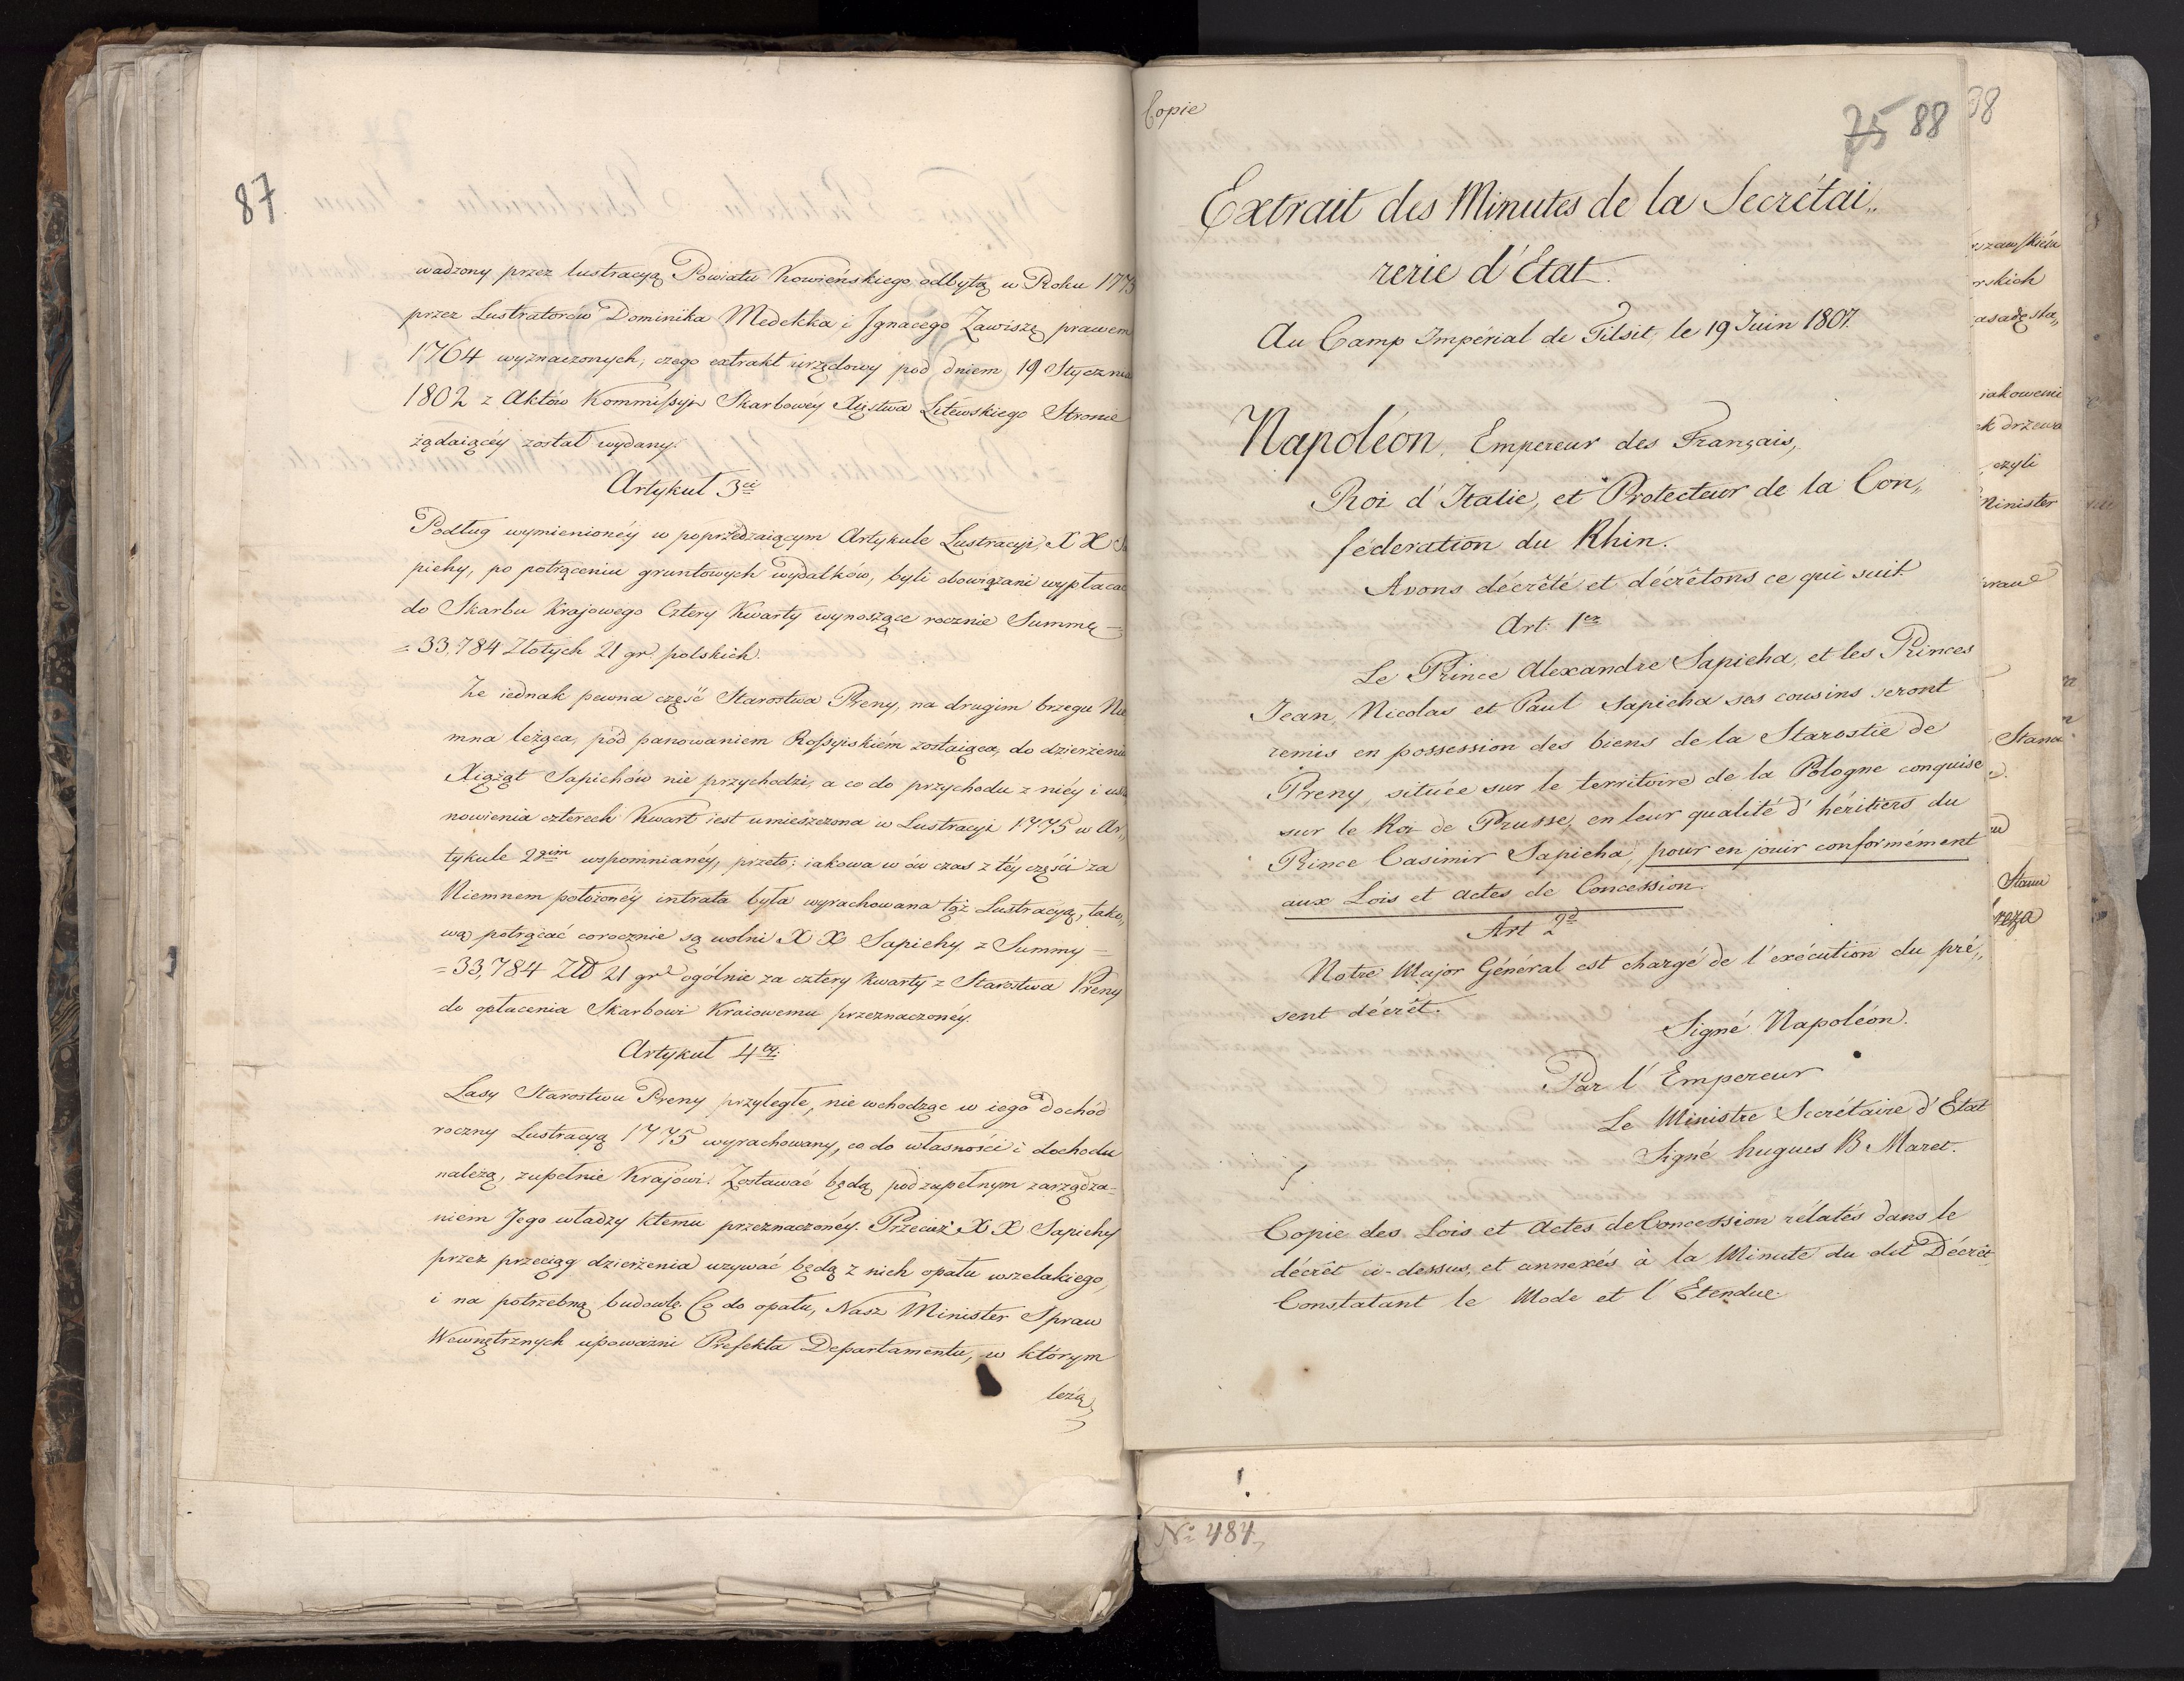 87
wadzony przez lustracyą Powiatu Kowieńskiego odbytą w Roku 1775
przez Lustratorów Dominika Medekka i Jgnacego Zawiszę prawem
1764 wyznaczonych, czego extrakt urzędowy pod dniem 19 Stycznia
1802 z Aktów Kommissyi Skarbowéy Xięstwa Litewskiego Stronie
żądaiącéy został wydany.
Artykuł 3ci
Podług wymienionéy w poprzedzaiącym Artykule Lustracyi, X X Sa
piehy, po potrąceniu gruntowych wydatków, byli obowiązani wypłacać
do Skarbu Krajowego Cztery Kwarty wynoszące rocznie Summę =
= 33,784 Złotych 21 gr. polskich.
Że iednak pewna część Starostwa Preny, na drugim brzegu Nie
mna leżąca, pod panowaniem Rossyiskiém zostaiąca, do dzierżenia
Xiążąt Sapiehów nie przychodzi, a co do przychodu z niéy i usta
nowienia czterech Kwart iest umieszczona w Lustracyi 1775 w Ar„
tykule 2gim wspomnianéy, przeto: iakowa w ów czas z téy części za
Niemnem położonéy intrata była wyrachowana tąż Lustracyą, tako„
wą potrącać corocznie są wolni X X Sapiehy z Summy =
= 33,784 Złł 21 gr. ogólnie za cztery kwarty z Starostwa Preny
do opłacenia Skarbowi Kraiowemu przeznaczonéy.
Artykuł 4ty
Lasy Starostwu Preny przyległe, nie wchodząc w iego dochód
roczny Lustracyą 1775 wyrachowany, co do własności i dochodu
należą, zupełnie Krajowi. Zostawać będą pod zupełnym zarządza=
niem Jego władzy ktemu przeznaczonéy. Przecież X X Sapiehy
przez przeciąg dzierżenia używać będą z nich opału wszelakiego,
i na potrzebną budowlę. Co do opału, Nasz Minister Spraw
Wewnętrznych upoważni Prefekta Departamentu, w którym
leżą
Copie
75 88
Extrait des Minutes de la Secrétai„
rerie d'Etat.
Au Camp Impérial de Tilsit, le 19 Juin 1807.
Napoléon, Empereur des Français,
Roi d'Italie, et Protecteur de la Con„
féderation du Rhin.
Avons décrêté et décrêtons ce qui suit.
Art. 1er
Le Prince Alexandre Sapieha, et les Princes
Jean Nicolas et Paul Sapieha ses cousins seront
remis en possession des biens de la Starostie de
Preny, située sur le territoire de la Pologne conquise
sur le Roi de Prusse, en leur qualité d'héritiers du
Prince Casimir Sapieha, pour en jouir conformément
aux Lois et actes de Concession.
Art 2d
Notre Major Général est chargé de l'exécution du pré„
sent décrêt.
Signé Napoléon.
Par l'Empereur
Le Ministre Secrétaire d'Etat
Signé hugues B Maret.
Copie des Lois et Actes de Concession rélatés dans le
décrêt ci-dessus, et annexés à la Minute du dit Décrêt
Constatant le Mode et l'Etendue.
98
rszawskiém
rskich
asadę sta„
iakowemi
ek drzewa
czyli
Minister
Stanu
reza
No 484